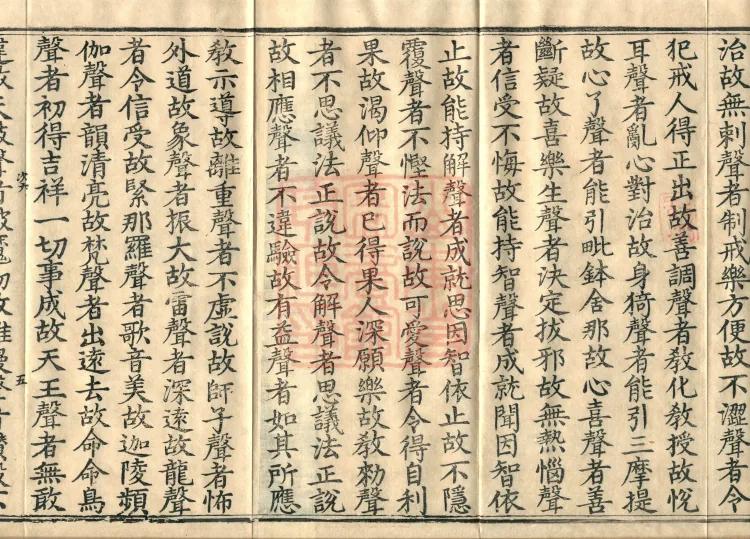 治故無刺聲者制戒樂方便故不澀聲者令
犯戒人得正出故善調聲者教化教授故悅
耳聲者亂心對治故身猗聲者能引三摩提
故心了聲者能引毗鉢舍那故心喜聲者善
斷疑故喜樂生聲者決定拔邪故無熱惱聲
者信受不悔故能持智聲者成就聞因智依
止故能持解聲者成就思因智依止故不隱
覆聲者不慳法而說故可愛聲者令得自利
果故渴仰聲者已得果人深願樂故教勑聲
者不思議法正說故令解聲者思議法正說
故相應聲者不違驗故有益聲者如其所應
教示導故離重聲者不虛說故師子聲者怖
外道故象聲者振大故雷聲者深遠故龍聲
者令信受故緊那羅聲者歌音美故迦陵頻
伽聲者韻清亮故梵聲者出遠去故命命鳥
聲者初得吉祥一切事成故天王聲者無敢
五